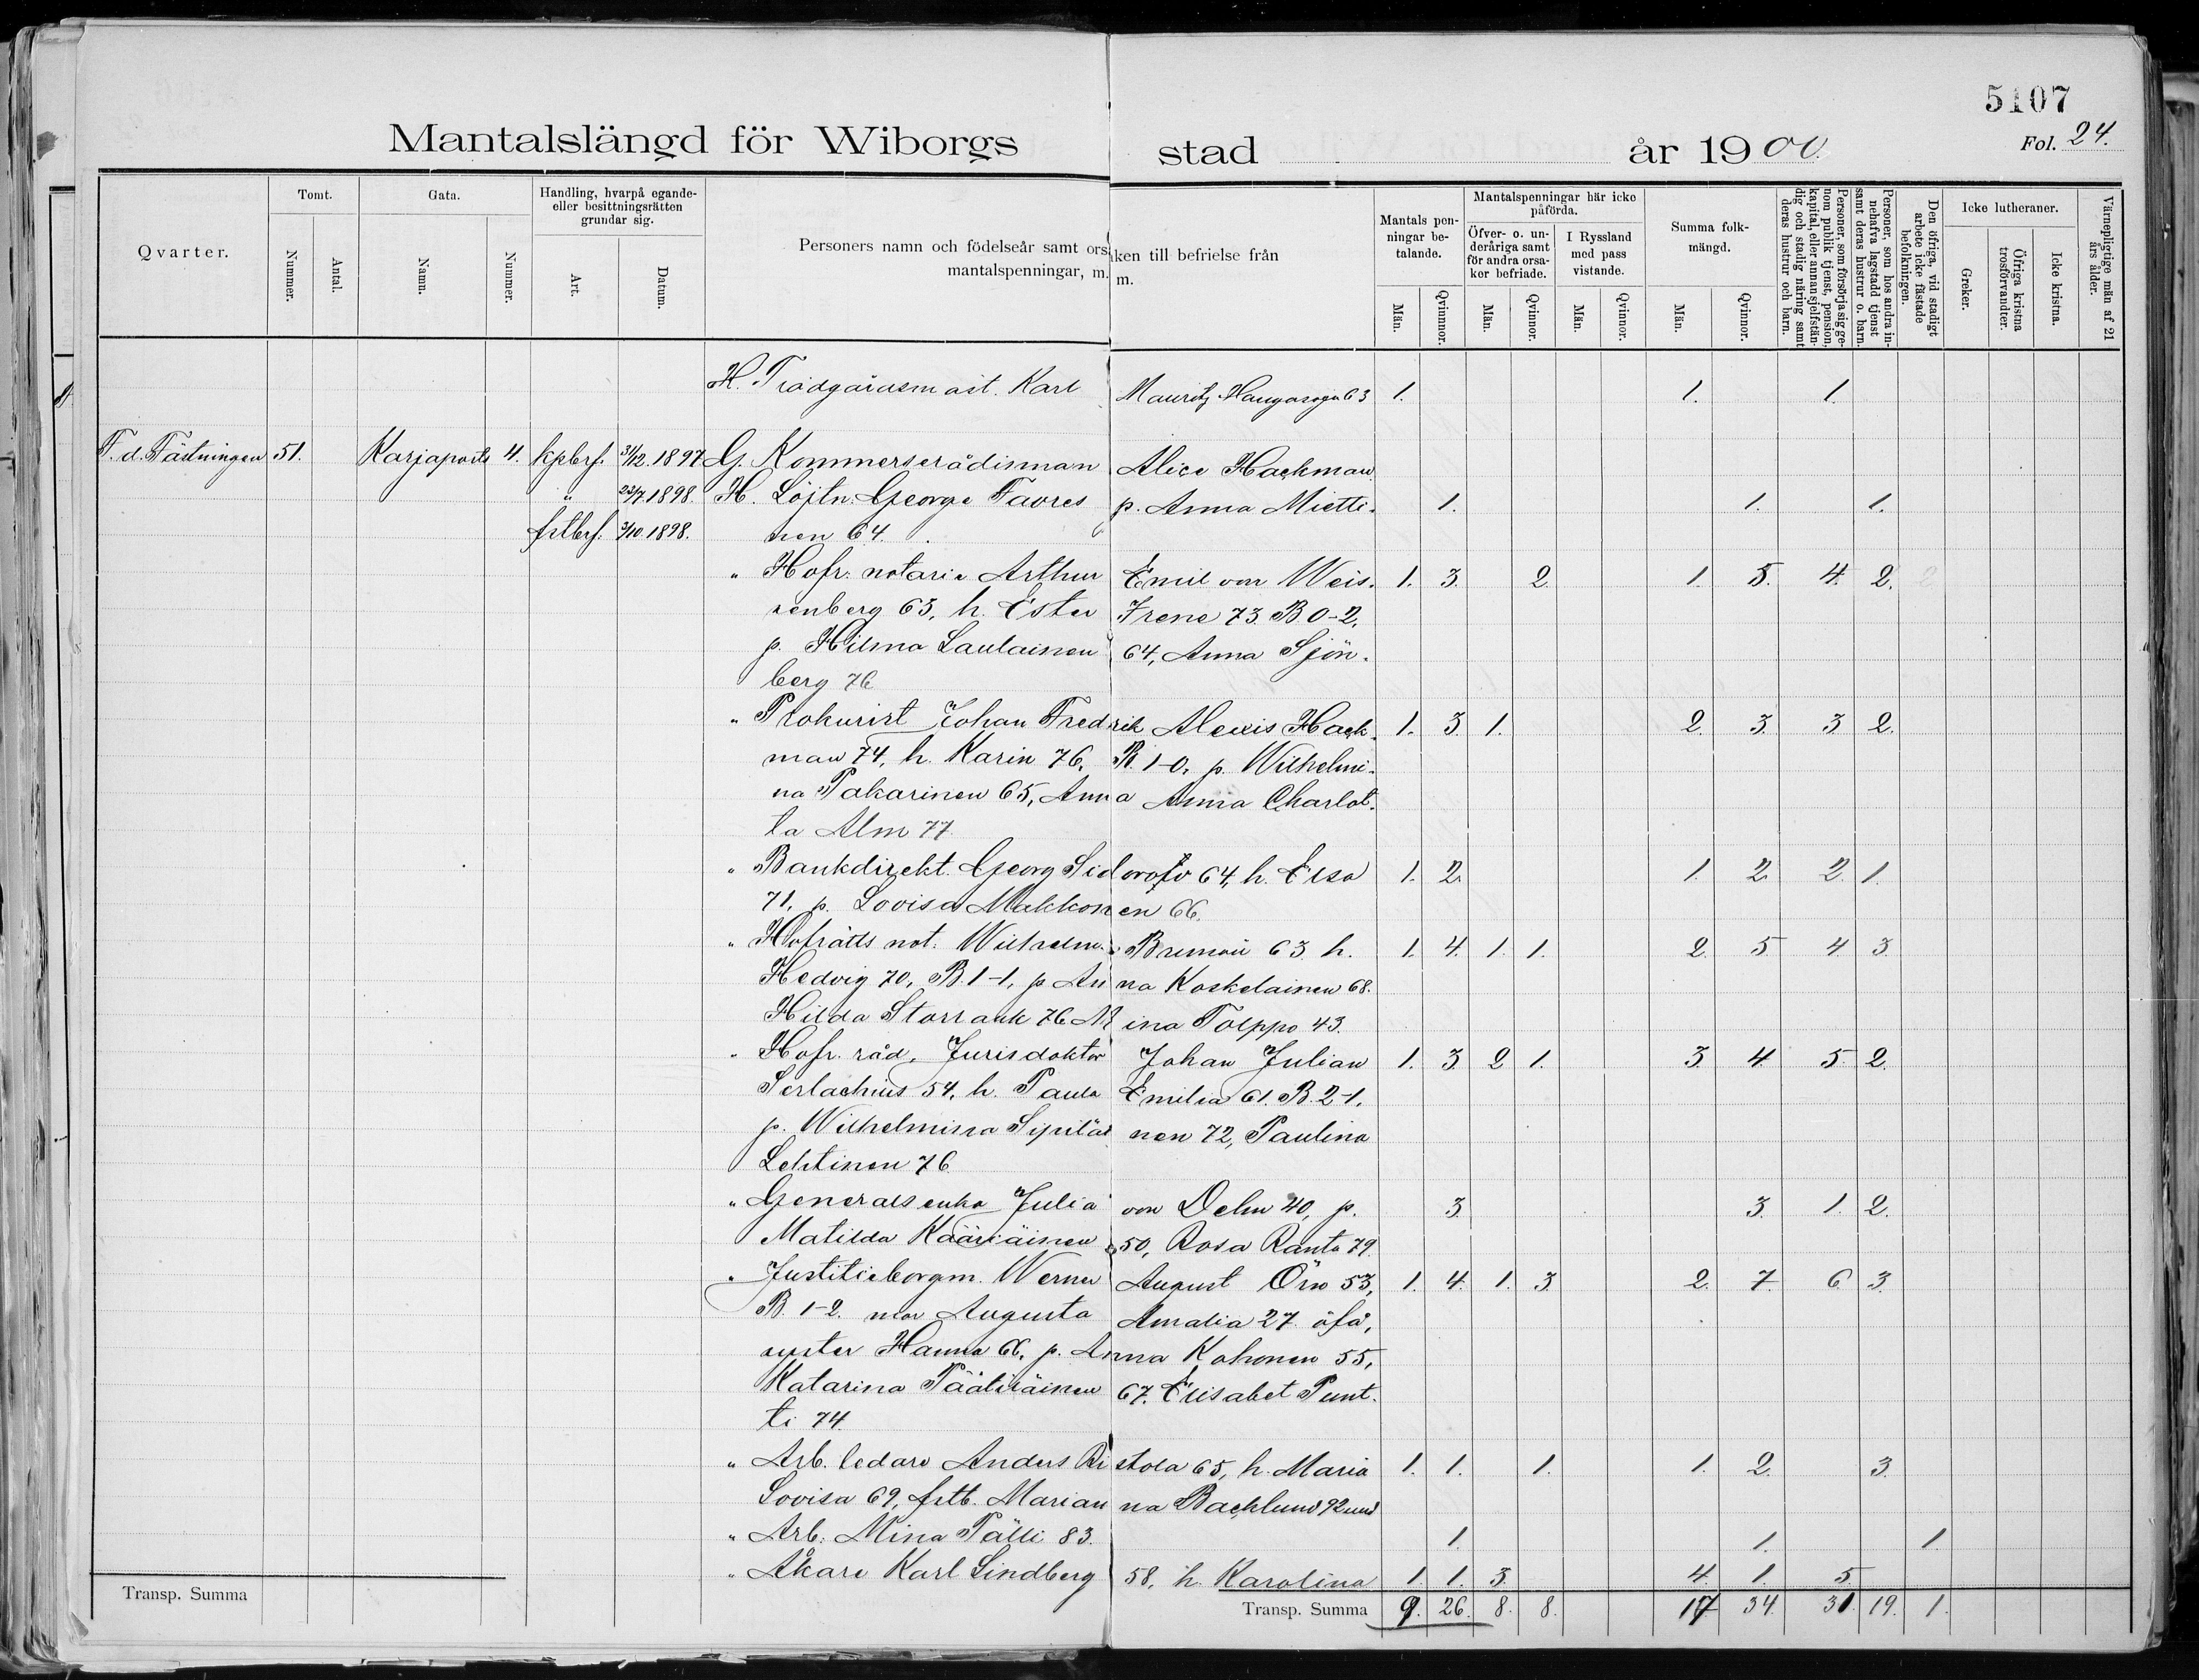 5107
Mantalslängd för Wiborgs stad år 1900.
Fol. 24.
Qvarter.
Tomt.
Nummer.
Antal.
Gata.
Namn.
Nummer.
Handling, hvarpå egande- eller besittningsrätten grundar sig.
Art.
Datum.
Personers namn och födelseår samt orsaken till befrielse från mantalspenningar, m. m.
Mantals penningar betalande.
Män.
Qvinnor.
Mantalspenningar här icke påförda.
Öfver- o. underåriga samt för andra orsaker befriade.
Män.
Qvinnor.
I Ryssland med pass vistande.
Män.
Qvinnor.
Summa folkmängd.
Män.
Qvinnor.
Personer, som försörja sig genom publik tjenst, pension, kapital, eller annan sjelfständig och stadig näring samt deras hustrur och barn.
Personer, som hos andra innehafva lagstadd tjenst samt deras hustrur o. barn.
Den öfriga, vid stadigt arbete icke fästade befolkningen.
Icke lutheraner.
Greker.
Öfriga kristna trosförvandter.
Icke kristna.
Värnepligtige män af 21 års ålder.
H. Trädgårdsmäst. Karl Mauritz 63 1. 1. 1.
F. d. Fästningen 51. Karjaports 4. kpbrf. 31/12.1897 G. Kommerserådinnan Alice Hackman
" 22/7.1898. H. Löjtn. George Favres p. Anna Mietti- 1. 1. 1.
fstbrf. 3/10.1898. nen 64.
" Hofr. notarie Arthur Emil von Weis- 1. 3. 2. 1. 5. 4. 2.
senberg 63, h. Ester Irene 73. B 0-2,
p. Hilma Laulainen 64, Anna Sjön-
berg 76
" Prokurist Johan Fredrik Alexis Hack- 1. 3. 1. 2. 3. 3 2.
man 74, h. Karin 76, B. 1-0, p. Wilhelmi-
na Pakarinen 65, Anna Annia Charlot-
ta Alm 77
" Bankdirekt. Georg Sidoroff 64, h. Elsa 1. 2. 1. 2 2. 1.
71, p. Lovisa Makkonen 66.
" Hofrätts not. Wilhelm Brunou 63 h. 1. 4. 1. 1. 2. 5 4 3.
Hedvig 70, B. 1-1, p Anna Koskelainen 68.
Hilda Storrank 76 Mina Tolppo 43.
" Hofr. råd, Jurisdoktor Johan Julian 1. 3. 2 1. 3. 4. 5. 2.
Serlachius 54, h. Paula Emilia 61. B. 2-1,
p. Wilhelmina Sipiläinen 72, Paulina
Lehtinen 76
" Generalsenka Julia von Dehn 40, p. 3. 3. 1. 2.
Matilda Kääriäinen 50, Rosa Ranta 79.
" Justitieborgm. Werner August Örn 53, 1. 4. 1. 3. 2. 7. 6. 3.
B. 1-2. mor Augusta Amalia 27 öfå,
syster Hanna 66, p. Anna Kohonen 55,
Katarina Päätiräinen 67. Elisabet Punt-
ti 74.
" Arb. ledare Anders Ristola 65, h. Maria 1. 1. 1. 1. 2. 3.
Lovisa 69, fstb. Marianna Backlund 92
" Arb. Mina Pälli 83. 1. 1. 1.
" Åkare Karl Lindberg 58, h. Karolina 1. 1. 3. 4. 1. 5.
Transp. Summa
Transp. Summa 9. 26. 8. 8. 17 34. 31. 19. 1.